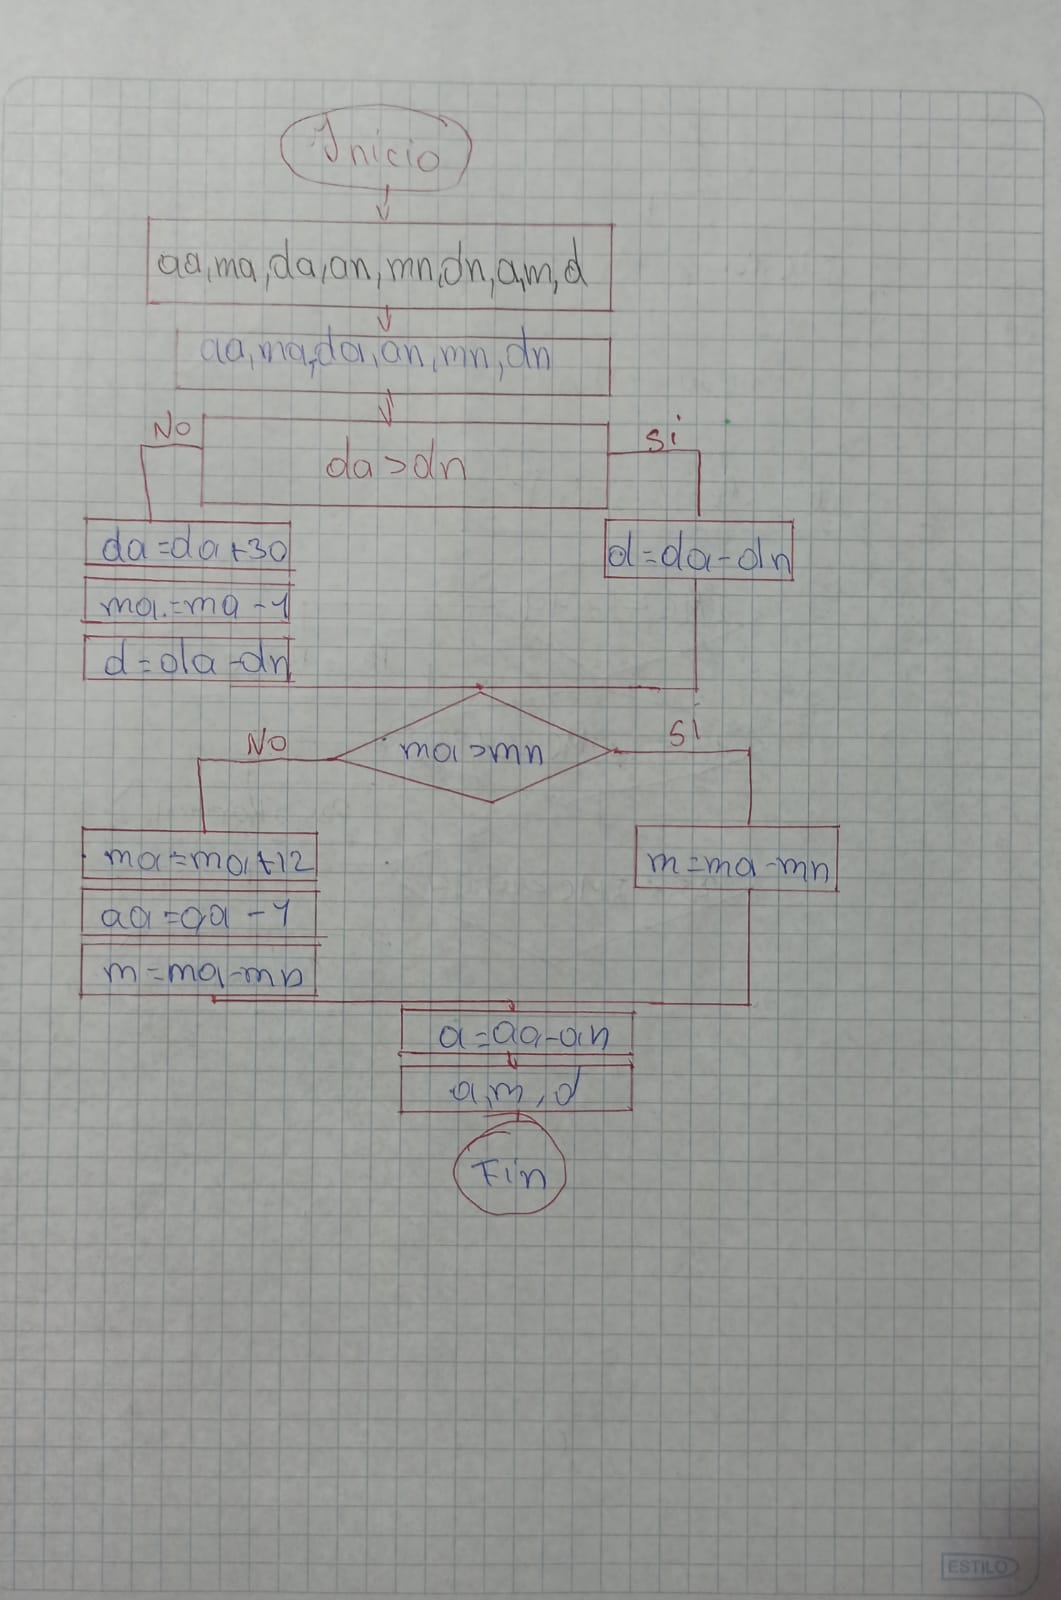 Inicio
aa, ma, da, an, mn, dn, a, m, d
aa, ma, da, an, mn, dn
No
da > dn
Si
da = da + 30
ma = ma - 1
d = da - dn
d = da - dn
No
ma > mn
Si
ma = ma + 12
aa = aa - 1
m = ma - mn
m = ma - mn
a = aa - an
a, m, d
Fin
ESTILO